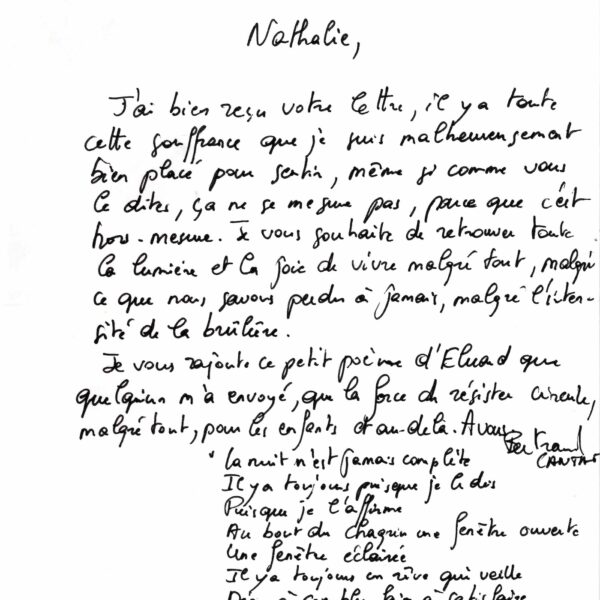 Nathalie,
J'ai bien reçu votre lettre, il y a toute
cette souffrance que je suis malheureusement
bien placé pour sentir, même si comme vous
le dites, ça ne se mesure pas, parce que c'est
hors-mesure. Je vous souhaite de retrouver toute
la lumière et la joie de vivre malgré tout, malgré
ce que nous savons perdu à jamais, malgré l'inten-
sité de la brûlure.
Je vous rajoute ce petit poème d'Eluard que
quelqu'un m'a envoyé, que la force de résister circule,
malgré tout, pour les enfants et au-delà. A vous
Bertrand
CANTAT
" La nuit n'est jamais complète
Il y a toujours puisque je le dis
Puisque je l'affirme
Au bout du chagrin une fenêtre ouverte
Une fenêtre éclairée
Il y a toujours un rêve qui veille